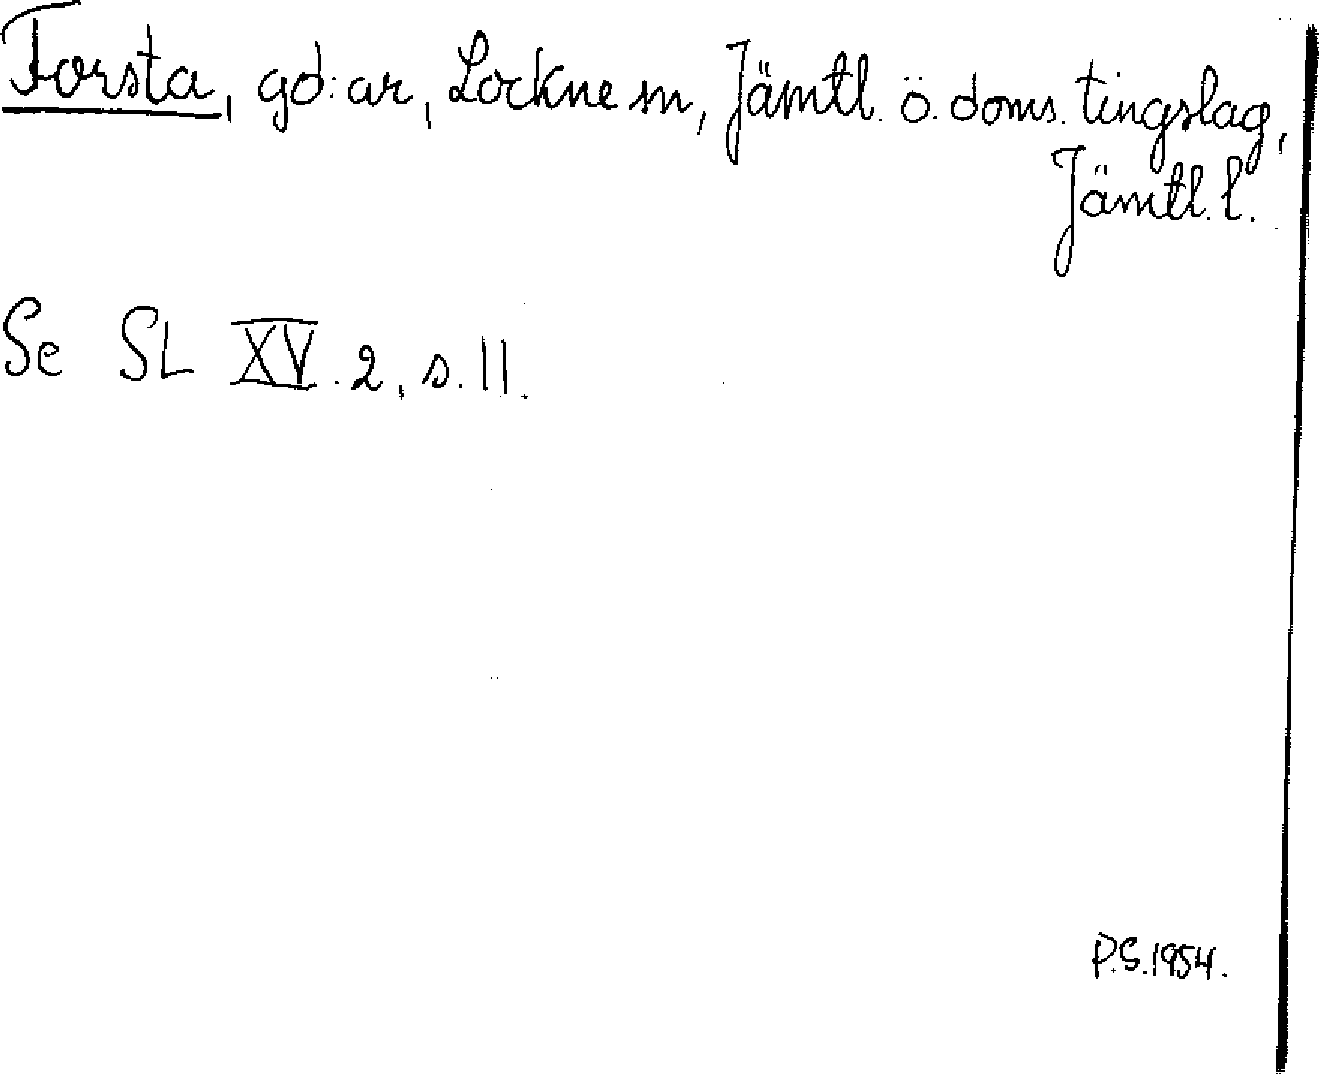 Forsta, gd:ar, Lockne sn, Jämtl. ö. doms. tingslag,
Jämtl. l.
Se SL XV. 2, s. 11.
P.S. 1954.